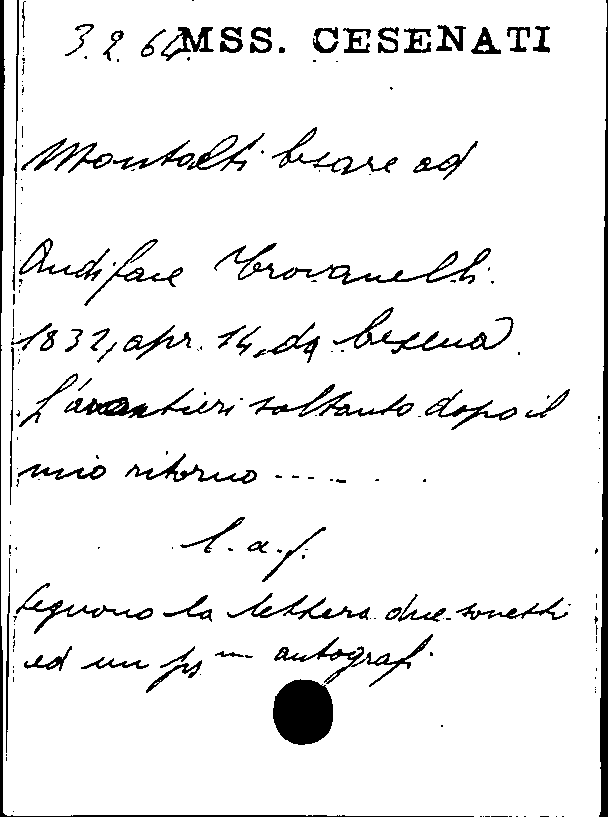 3.2.64 MSS. CESENATI
Montalti Cesare ad
Audiface Trovanelli.
1832, apr. 14, da Cesena
L'avantieri soltanto dopo il
mio ritorno ---- . .
l. a. f.
Seguono la lettera due sonetti
ed un autografi